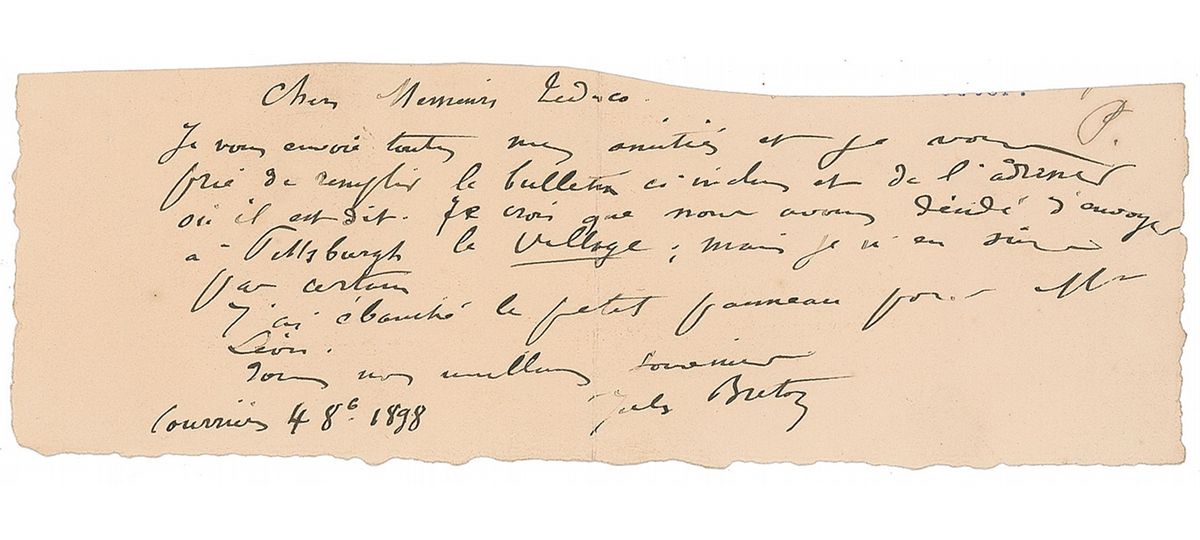 Chers Messieurs Tedesco.
P.
Je vous envoie toutes mes amitiés et je vous
prie de remplir le bulletin ci inclus et de l'adresser
où il est dit. Je crois que nous avons décidé d'envoyer
à Pittsburgh le Village ; mais je n'en suis
pas certain
J'ai ébauché le petit panneau pour Mr
Léon.
Tous nos meilleurs souvenirs
Jules Breton
Courrières 4 8b. 1898